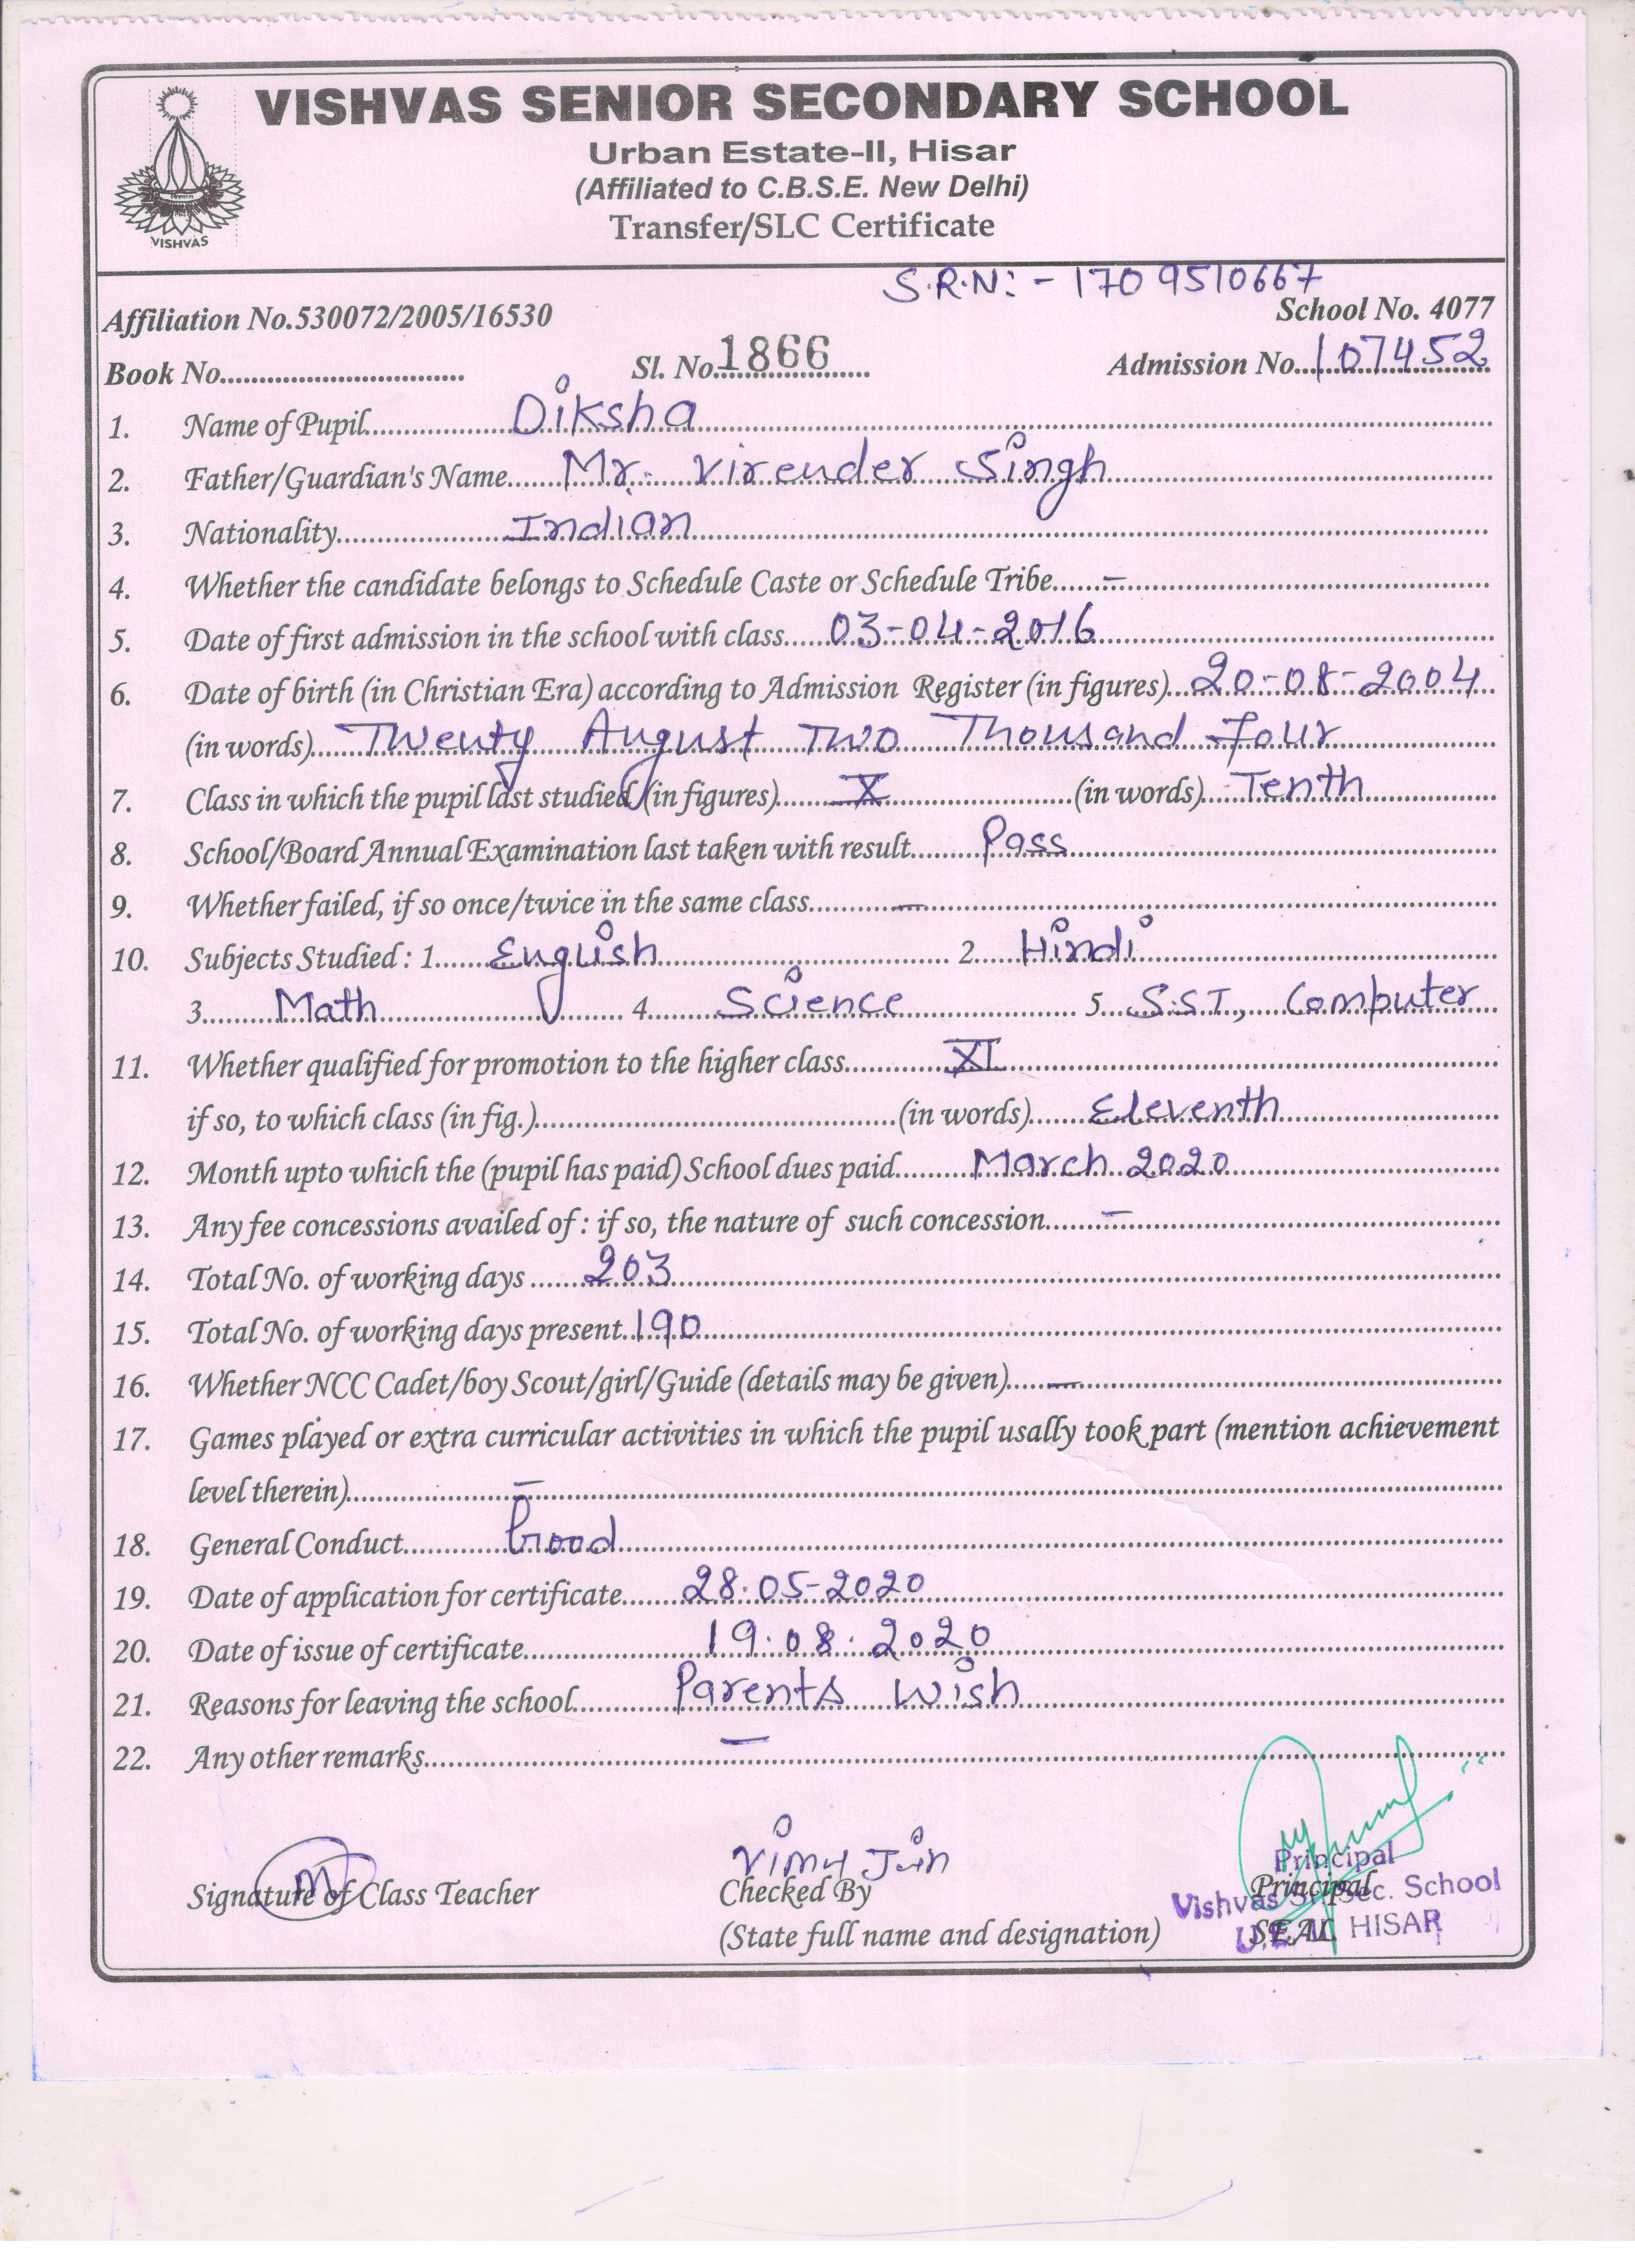 VISHVAS SENIOR SECONDARY SCHOOL
Urban Estate-II, Hisar
(Affiliated to C.B.S.E. New Delhi)
Transfer/SLC Certificate
VISHVAS
S.R.N:- 1709510667
Affiliation No.530072/2005/16530 School No. 4077
Book No.............................. Sl. No.1866 Admission No. 107452
1. Name of Pupil Diksha
2. Father/Guardian's Name Mr. Virender Singh
3. Nationality Indian
4. Whether the candidate belongs to Schedule Caste or Schedule Tribe -
5. Date of first admission in the school with class 03-04-2016
6. Date of birth (in Christian Era) according to Admission Register (in figures) 20-08-2004
(in words) Twenty August Two Thousand Four
7. Class in which the pupil last studied (in figures) X (in words) Tenth
8. School/Board Annual Examination last taken with result Pass
9. Whether failed, if so once/twice in the same class -
10. Subjects Studied : 1. English 2. Hindi
3. Math 4. Science 5. S.S.T., Computer
11. Whether qualified for promotion to the higher class XI
if so, to which class (in fig.) (in words) Eleventh
12. Month upto which the (pupil has paid) School dues paid March 2020
13. Any fee concessions availed of : if so, the nature of such concession -
14. Total No. of working days 203
15. Total No. of working days present 190
16. Whether NCC Cadet/boy Scout/girl/Guide (details may be given) -
17. Games played or extra curricular activities in which the pupil usally took part (mention achievement
level therein) -
18. General Conduct Good
19. Date of application for certificate 28.05-2020
20. Date of issue of certificate 19.08.2020
21. Reasons for leaving the school Parents Wish
22. Any other remarks -
Signature of Class Teacher Checked By Principal
(State full name and designation) SEAL
Principal
Vishvas Sr. Sec. School
HISAR